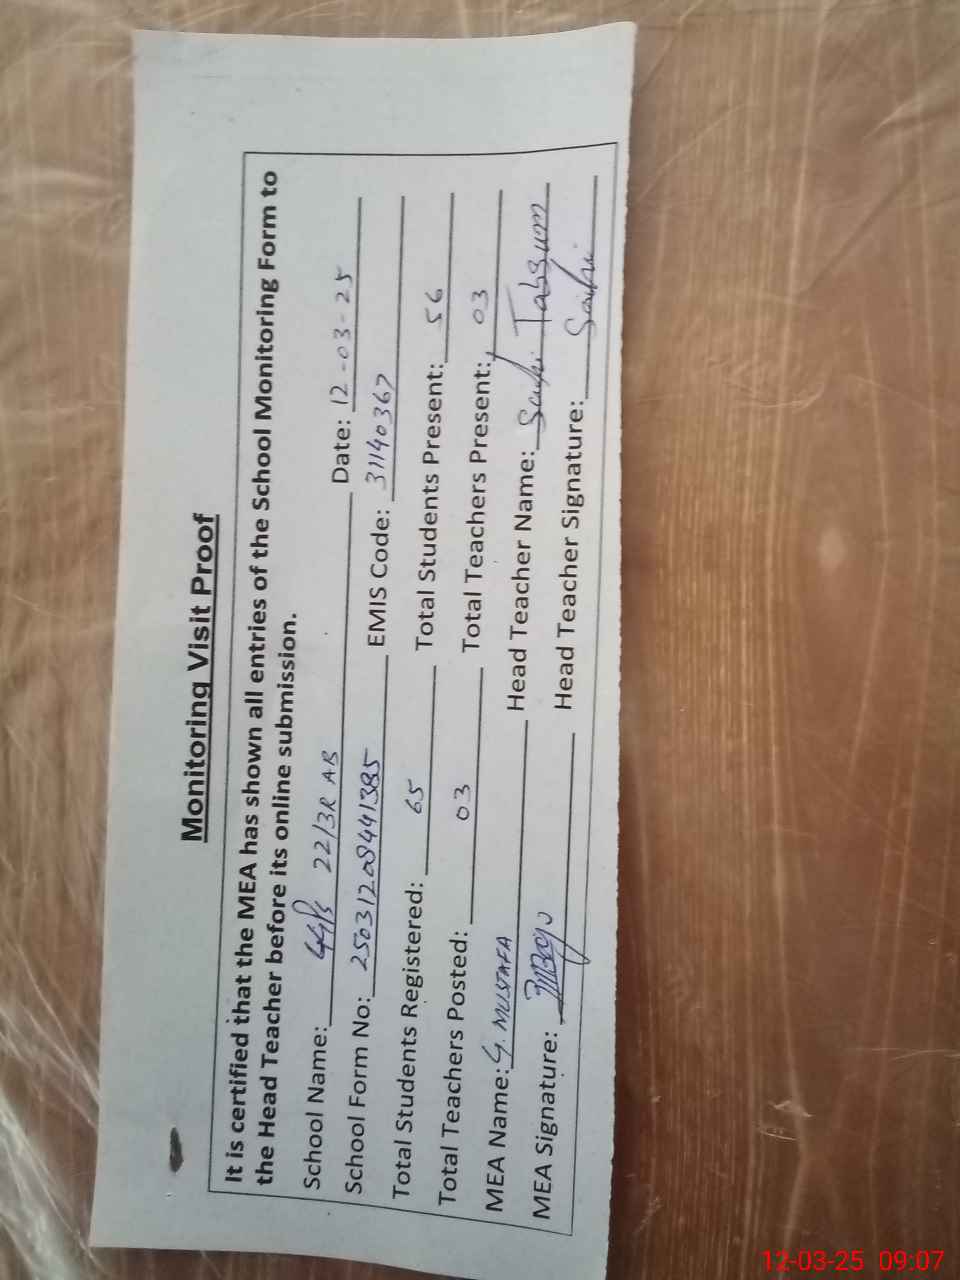 Monitoring Visit Proof
It is certified that the MEA has shown all entries of the School Monitoring Form to
the Head Teacher before its online submission.
School Name: 22/3R AB Date: 12-03-25
School Form No: 25031208441385 EMIS Code: 31140367
Total Students Registered: 65 Total Students Present: 56
Total Teachers Posted: 03 Total Teachers Present: 03
MEA Name: G. MUSTAFA Head Teacher Name: Tabsum
MEA Signature: Head Teacher Signature:
12-03-25 09:07